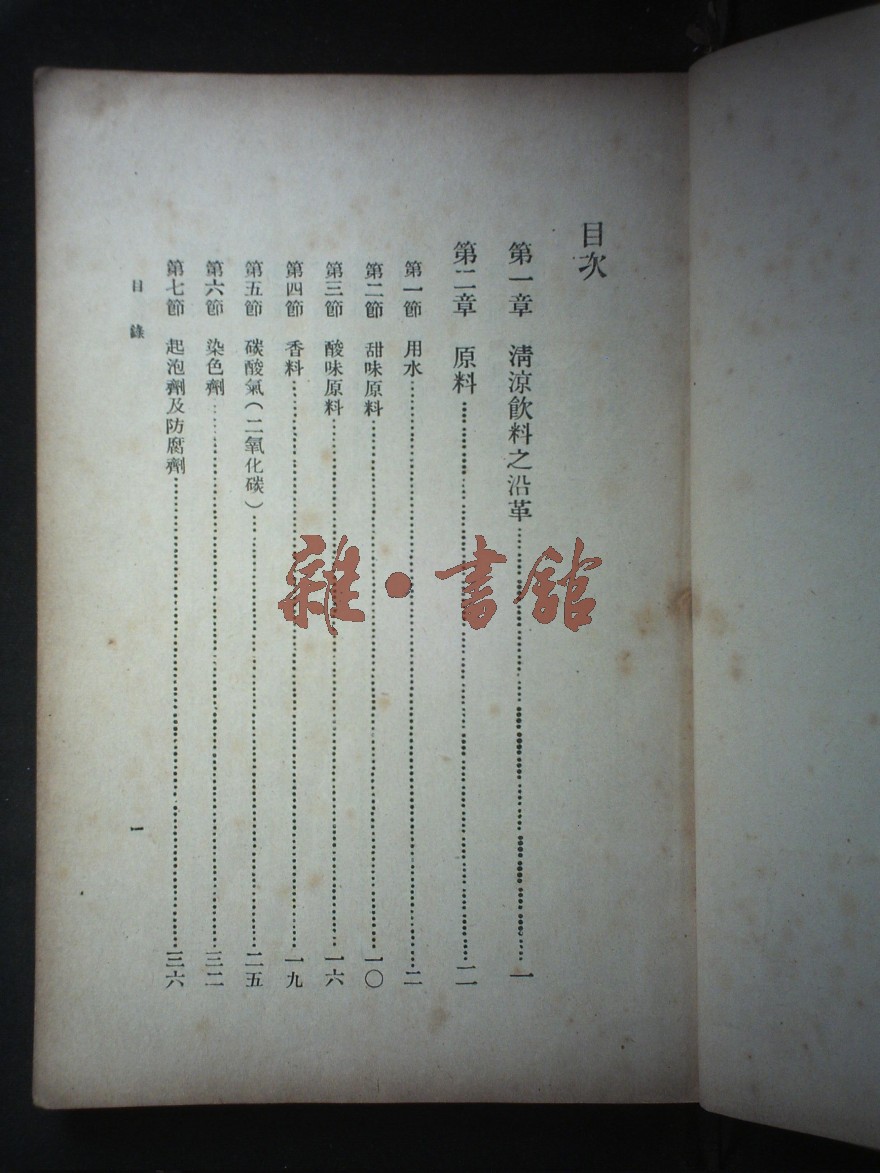 目次
第一章 清涼飲料之沿革…………一
第二章 原料…………二
第一節 用水…………二
第二節 甜味原料…………一〇
第三節 酸味原料…………一六
第四節 香料…………一九
第五節 碳酸氣(二氧化碳)…………二五
第六節 染色劑…………三二
第七節 起泡劑及防腐劑…………三六
目錄 一
雜·書館